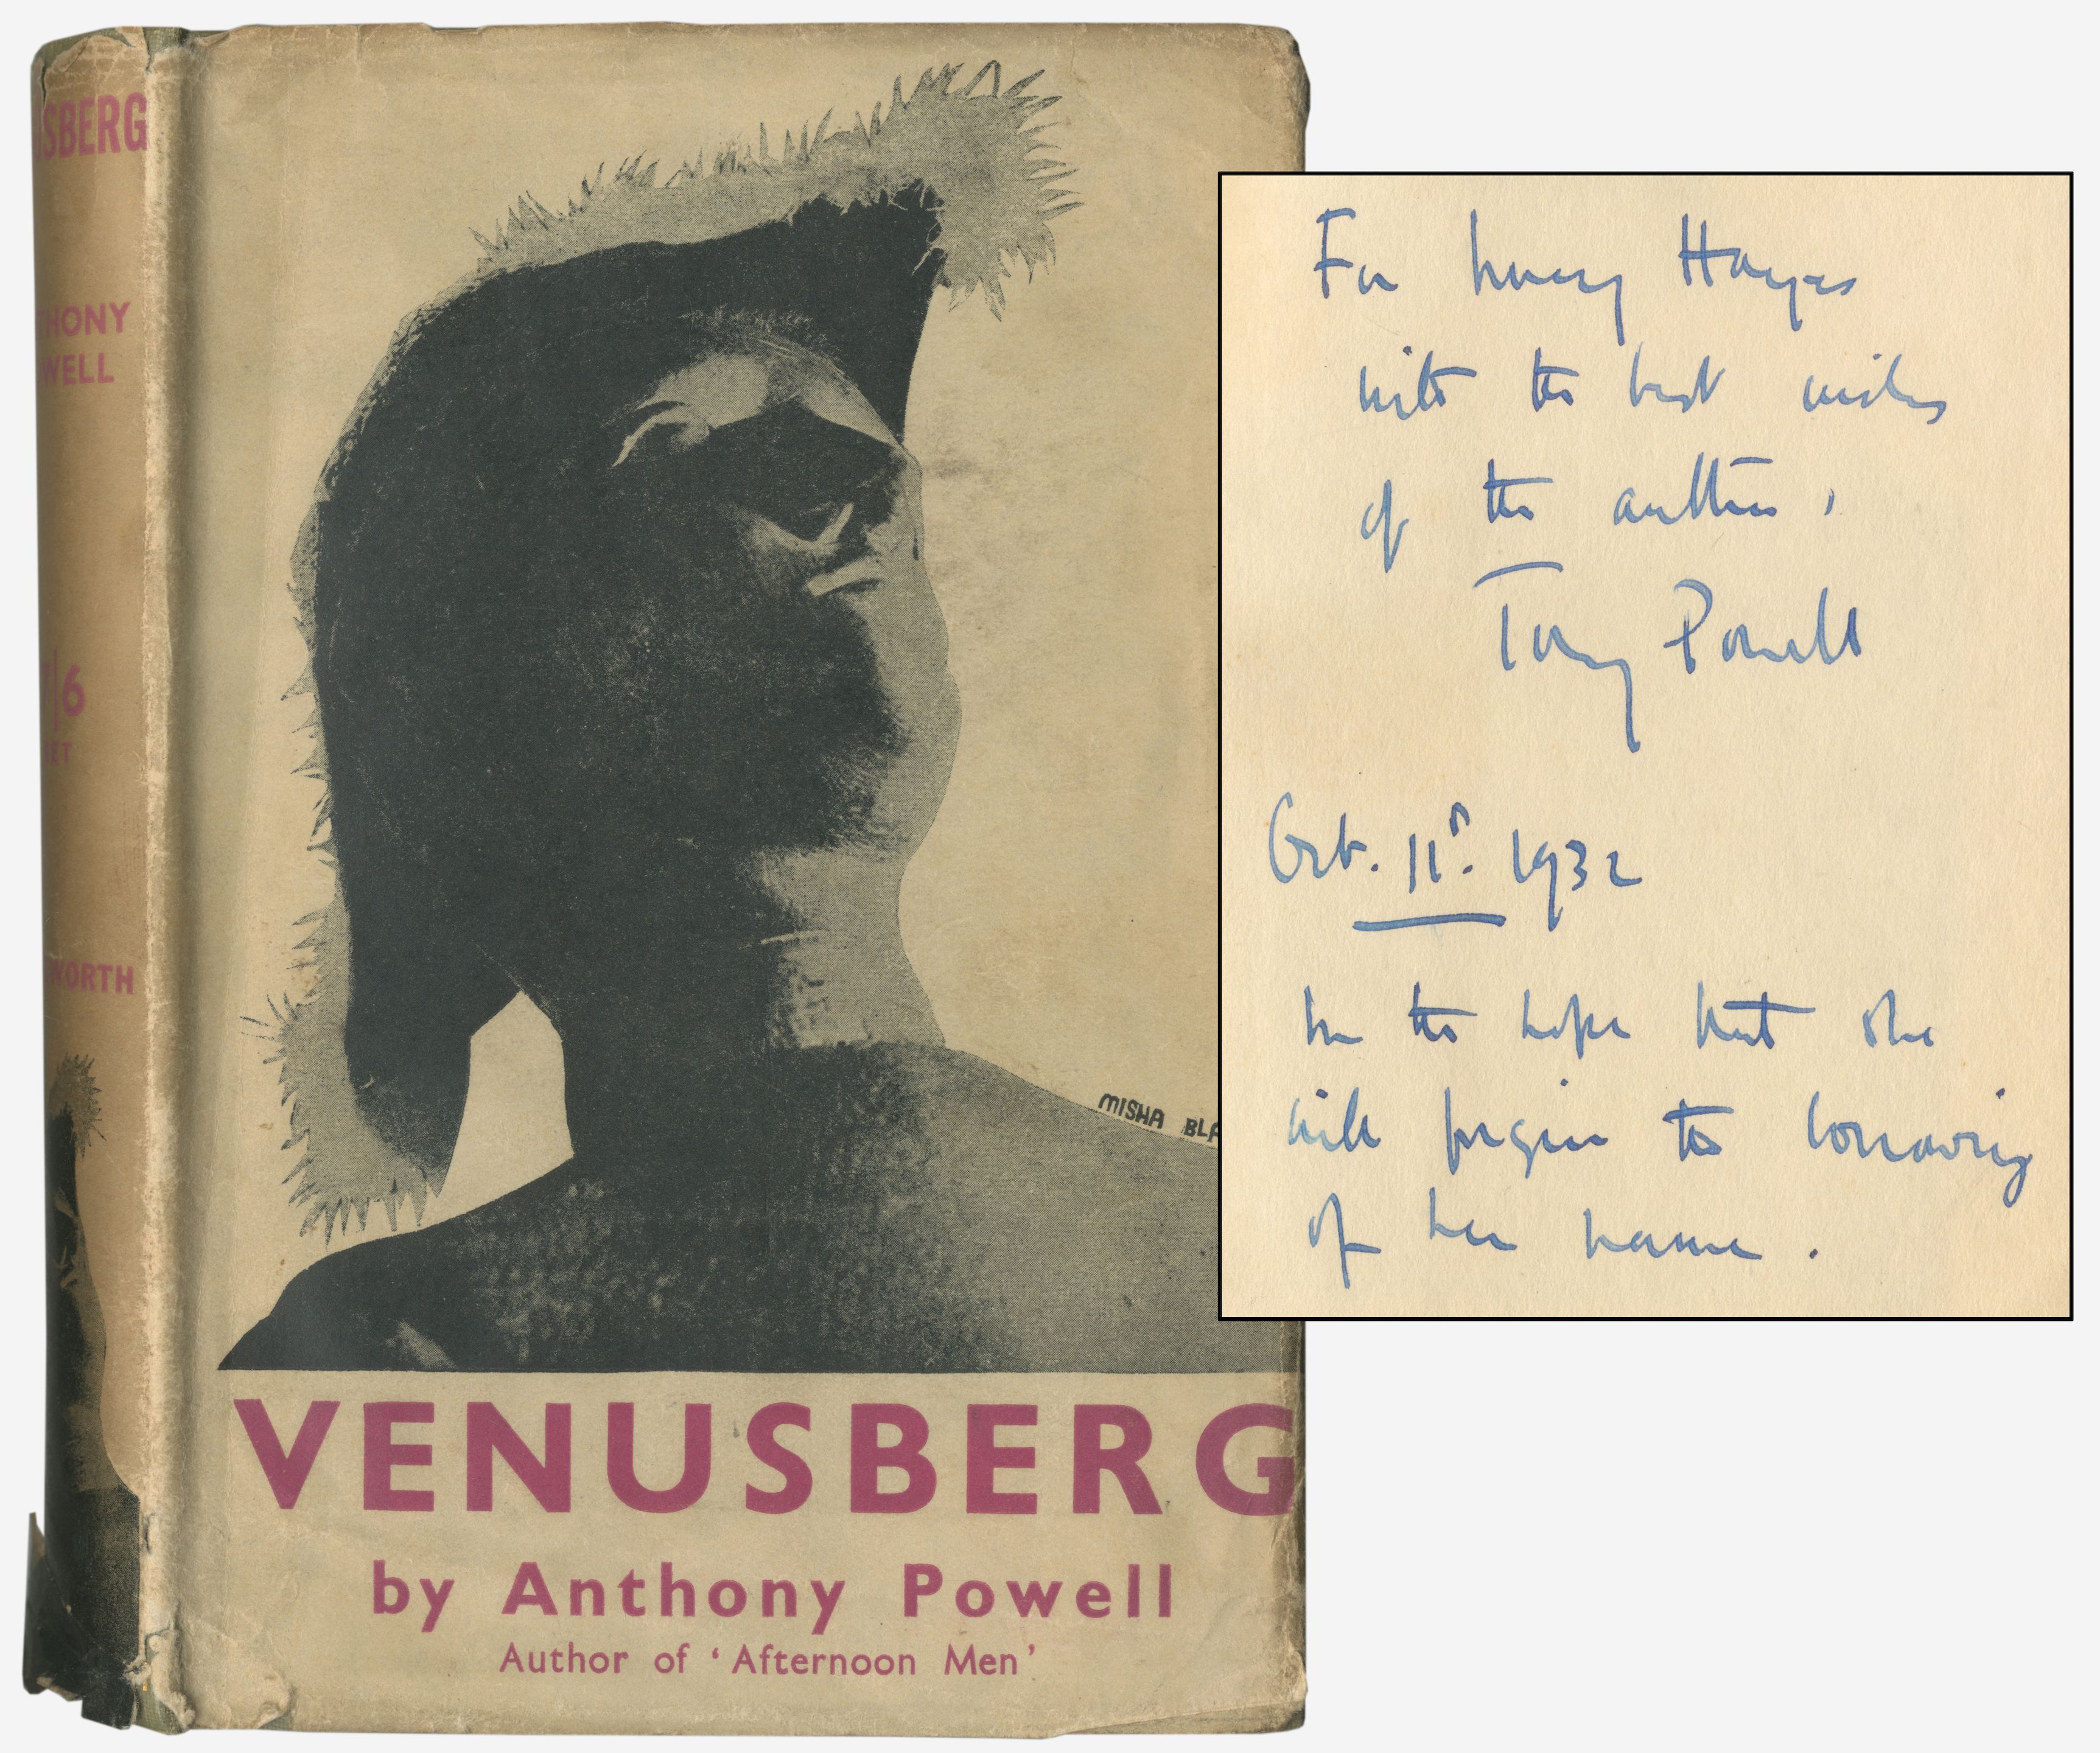 SBERG
THONY
WELL
7/6
NET
WORTH
MISHA BLA
VENUSBERG
by Anthony Powell
Author of ‘Afternoon Men’
For Hayes
with the best wishes
of the author,
Tony Powell
Oct. 11th. 1932
In the hope that she
will forgive the borrowing
of her name.